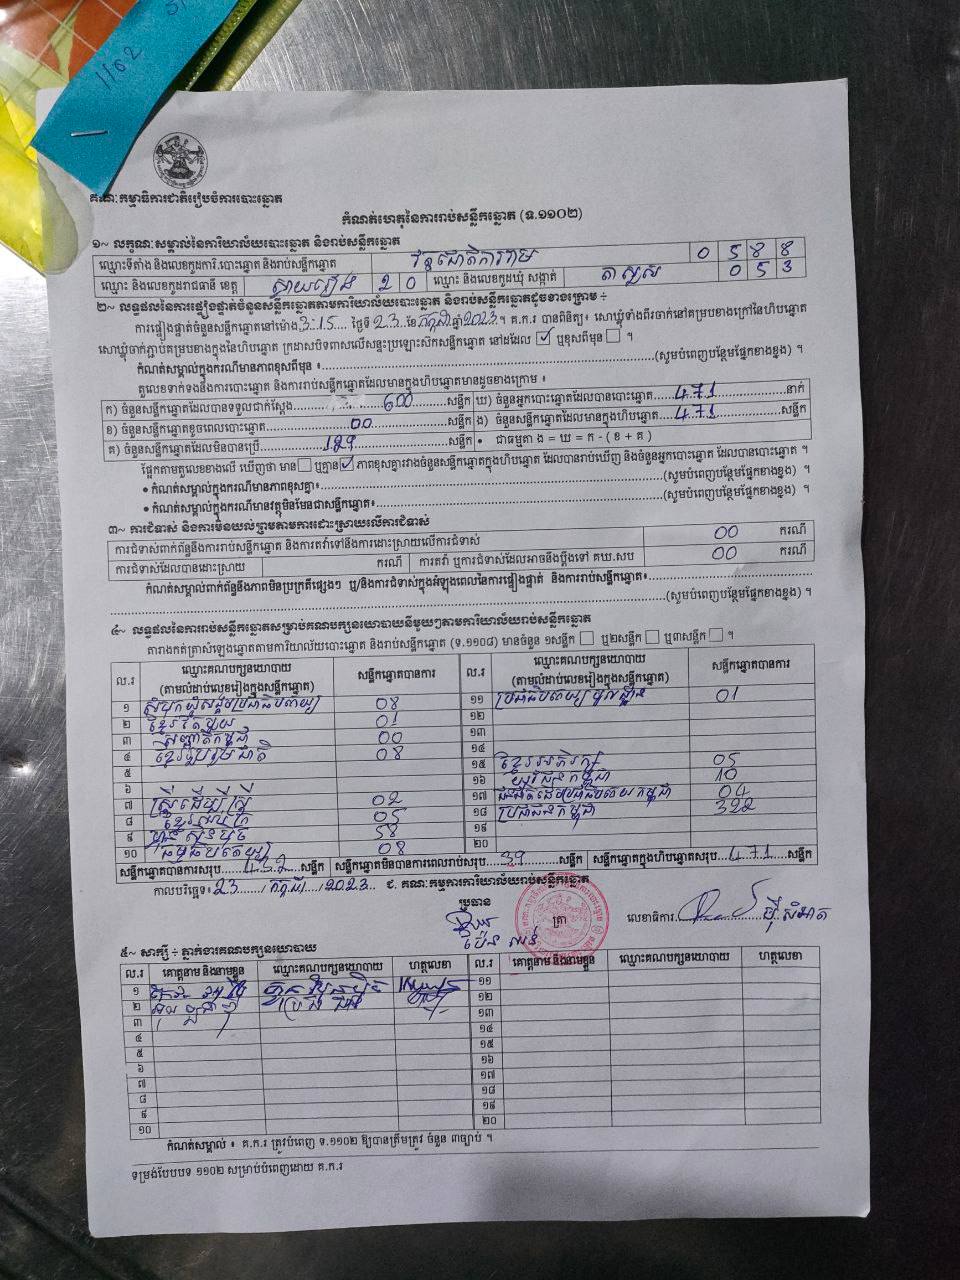 1102
គណៈកម្មាធិការជាតិរៀបចំការបោះឆ្នោត
កំណត់ហេតុនៃការរាប់សន្លឹកឆ្នោត (ទ.១១០២)
១~ លក្ខណៈសម្គាល់នៃការិយាល័យបោះឆ្នោត និងរាប់សន្លឹកឆ្នោត
ឈ្មោះទីតាំង និងលេខកូដការិ.បោះឆ្នោត និងរាប់សន្លឹកឆ្នោត 0 5 8 8
ឈ្មោះ និងលេខកូដរាជធានី ខេត្ត ស្វាយរៀង 2 0 ឈ្មោះ និងលេខកូដឃុំ សង្កាត់ តាសួស 0 5 3
២~ លទ្ធផលនៃការផ្ទៀងផ្ទាត់ចំនួនសន្លឹកឆ្នោតតាមការិយាល័យបោះឆ្នោត និងរាប់សន្លឹកឆ្នោតដូចខាងក្រោម ÷
ការផ្ទៀងផ្ទាត់ចំនួនសន្លឹកឆ្នោតនៅម៉ោង 3:15 ថ្ងៃទី 23 ខែ កក្កដា ឆ្នាំ 2023 ។ គ.ក.រ បានពិនិត្យ៖ សោឃ្មុំទាំងពីរចាក់នៅគម្របខាងក្រៅនៃហិបឆ្នោត
សោឃ្មុំចាក់ភ្ជាប់គម្របខាងក្នុងនៃហិបឆ្នោត ក្រដាសបិទពាសលើសន្ទះប្រឡោះសឹកសន្លឹកឆ្នោត នៅដដែល ✓ ឬខុសពីមុន ។
កំណត់សម្គាល់ក្នុងករណីមានភាពខុសពីមុន ៖ (សូមបំពេញបន្ថែមផ្នែកខាងខ្នង) ។
តួលេខទាក់ទងនឹងការបោះឆ្នោត និងការរាប់សន្លឹកឆ្នោតដែលមានក្នុងហិបឆ្នោតមានដូចខាងក្រោម ៖
ក) ចំនួនសន្លឹកឆ្នោតដែលបានទទួលជាក់ស្តែង 600 សន្លឹក ឃ) ចំនួនអ្នកបោះឆ្នោតដែលបានបោះឆ្នោត 471 នាក់
ខ) ចំនួនសន្លឹកឆ្នោតខូចពេលបោះឆ្នោត 00 សន្លឹក ង) ចំនួនសន្លឹកឆ្នោតដែលមានក្នុងហិបឆ្នោត 471 សន្លឹក
គ) ចំនួនសន្លឹកឆ្នោតដែលមិនបានប្រើ 129 សន្លឹក • ជាធម្មតា ង = ឃ = ក - ( ខ + គ )
ផ្អែកតាមតួលេខខាងលើ ឃើញថា មាន ឬគ្មាន ✓ ភាពខុសគ្នារវាងចំនួនសន្លឹកឆ្នោតក្នុងហិបឆ្នោត ដែលបានរាប់ឃើញ និងចំនួនអ្នកបោះឆ្នោត ដែលបានបោះឆ្នោត ។
• កំណត់សម្គាល់ក្នុងករណីមានភាពខុសគ្នា៖ (សូមបំពេញបន្ថែមផ្នែកខាងខ្នង) ។
• កំណត់សម្គាល់ក្នុងករណីមានវត្ថុមិនមែនជាសន្លឹកឆ្នោត៖ (សូមបំពេញបន្ថែមផ្នែកខាងខ្នង) ។
៣~ ការជំទាស់ និងការមិនយល់ព្រមតាមការដោះស្រាយលើការជំទាស់
ការជំទាស់ពាក់ព័ន្ធនឹងការរាប់សន្លឹកឆ្នោត និងការតវ៉ាទៅនឹងការដោះស្រាយលើការជំទាស់ 00 ករណី
ការជំទាស់ដែលបានដោះស្រាយ ករណី ការតវ៉ា ឬការជំទាស់ដែលអាចនឹងប្តឹងទៅ គឃ.សប 00 ករណី
កំណត់សម្គាល់ពាក់ព័ន្ធនឹងភាពមិនប្រក្រតីផ្សេងៗ ឬ/និងការជំទាស់ក្នុងអំឡុងពេលនៃការផ្ទៀងផ្ទាត់ និងការរាប់សន្លឹកឆ្នោត៖
(សូមបំពេញបន្ថែមផ្នែកខាងខ្នង) ។
៤~ លទ្ធផលនៃការរាប់សន្លឹកឆ្នោតសម្រាប់គណបក្សនយោបាយនីមួយៗតាមការិយាល័យរាប់សន្លឹកឆ្នោត
តារាងកត់ត្រាសំឡេងឆ្នោតតាមការិយាល័យបោះឆ្នោត និងរាប់សន្លឹកឆ្នោត (ទ.១១០៨) មានចំនួន ១សន្លឹក ឬ២សន្លឹក ឬ៣សន្លឹក ។
ល.រ ឈ្មោះគណបក្សនយោបាយ (តាមលំដាប់លេខរៀងក្នុងសន្លឹកឆ្នោត) សន្លឹកឆ្នោតបានការ ល.រ ឈ្មោះគណបក្សនយោបាយ (តាមលំដាប់លេខរៀងក្នុងសន្លឹកឆ្នោត) សន្លឹកឆ្នោតបានការ
១ សំបុកឃ្មុំសង្គមប្រជាធិបតេយ្យ 08 ១១ 01
២ ខ្មែរតែមួយ 01 ១២
៣ 00 ១៣
៤ ខ្មែររួបរួមជាតិ 08 ១៤
៥ ១៥ ខ្មែរអភិរក្ស 05
៦ ១៦ យុវជនកម្ពុជា 10
៧ ស្ត្រីដើម្បីស្ត្រី 02 ១៧ 04
៨ 05 ១៨ ប្រជាជនកម្ពុជា 322
៩ ហ្វ៊ុនស៊ិនប៉ិច 58 ១៩
១០ ធម្មាធិបតេយ្យ 08 ២០
សន្លឹកឆ្នោតបានការសរុប 432 សន្លឹក សន្លឹកឆ្នោតមិនបានការពេលរាប់សរុប 39 សន្លឹក សន្លឹកឆ្នោតក្នុងហិបឆ្នោតសរុប 471 សន្លឹក
កាលបរិច្ឆេទ៖ 23 / កក្កដា / 2023 ជ. គណៈកម្មការការិយាល័យរាប់សន្លឹកឆ្នោត
ប្រធាន ត្រា លេខាធិការ
៥~ សាក្សី ÷ ភ្នាក់ងារគណបក្សនយោបាយ
ល.រ គោត្តនាម និងនាមខ្លួន ឈ្មោះគណបក្សនយោបាយ ហត្ថលេខា ល.រ គោត្តនាម និងនាមខ្លួន ឈ្មោះគណបក្សនយោបាយ ហត្ថលេខា
១ ១១
២ ១២
៣ ១៣
៤ ១៤
៥ ១៥
៦ ១៦
៧ ១៧
៨ ១៨
៩ ១៩
១០ ២០
កំណត់សម្គាល់ ៖ គ.ក.រ ត្រូវបំពេញ ទ.១១០២ ឱ្យបានត្រឹមត្រូវ ចំនួន ៣ច្បាប់ ។
ទម្រង់បែបបទ ១១០២ សម្រាប់បំពេញដោយ គ.ក.រ